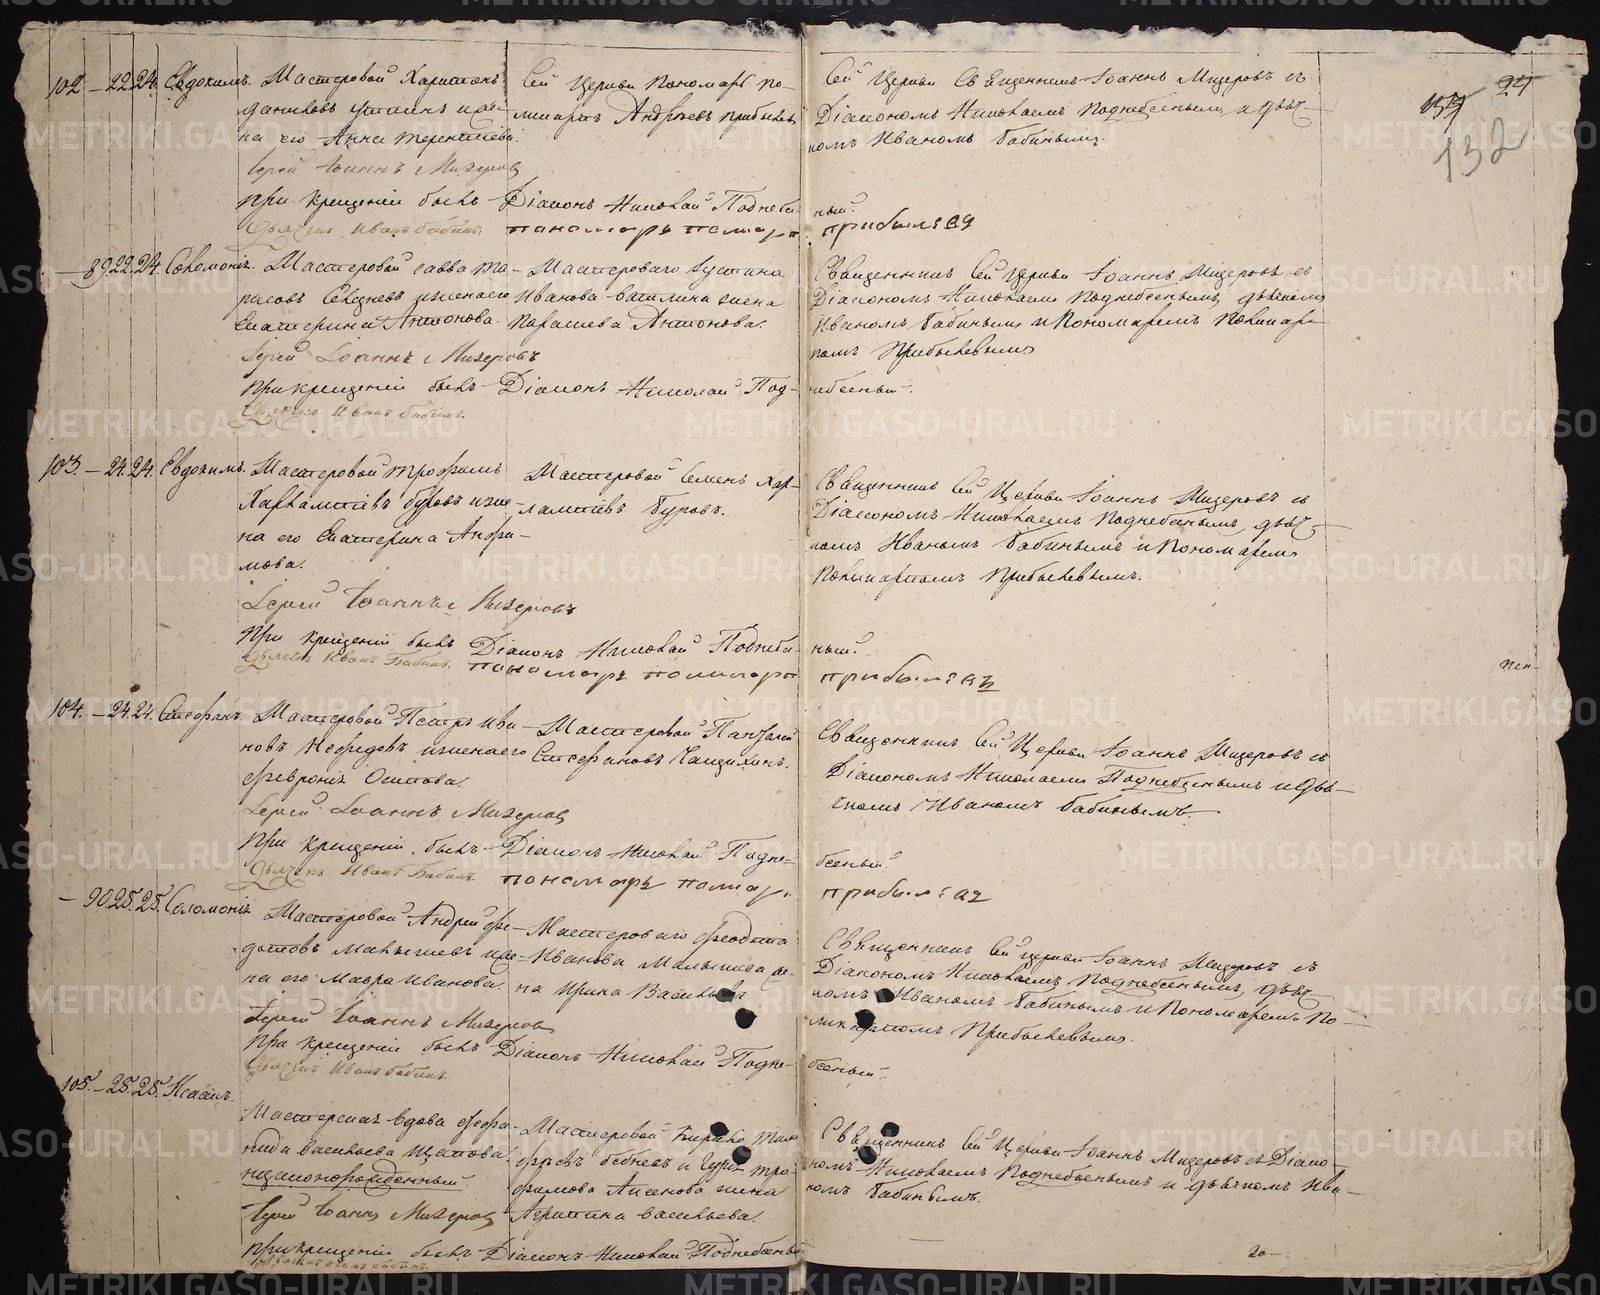 102 – 22. 24. Евдокимъ. Мастеровой Харитонъ
Даниловъ и же-
на его Анна Терентиева.
Сей Церкви Пономарь По-
ликарпъ Андреевъ Прибылевъ
Сей Церкви Священникъ Iоаннъ Мизеровъ съ
Дiакономъ Николаемъ Поднебеснымъ и дьяч-
комъ Иваномъ Бабинымъ.
24
132
Iерей Iоаннъ Мизеровъ
При крещенiи былъ Дiаконъ Николай Поднебе-
сный.
Дьячекъ Иванъ Бабинъ. пономарь поликарп
прибылевъ
– 89. 22. 24. Соломонiя. Мастеровой Савва Та-
расовъ и жена его
Екатерина Антонова.
Мастероваго Iустина
Иванова жена
Параскева Антонова.
Священникъ Сей Церкви Iоаннъ Мизеровъ съ
Дiакономъ Николаемъ Поднебеснымъ, дьячкомъ
Иваномъ Бабинымъ и Пономаремъ Поликар-
помъ Прибылевымъ
Iерей Iоаннъ Мизеровъ
При крещенiи былъ Дiаконъ Николай Под-
небесный.
Дьячекъ Иванъ Бабинъ.
103. – 24. 24. Евдокимъ. Мастеровой Трофимъ
Харлампiевъ Буровъ и же-
на его Екатерина Анфи-
мова.
Мастеровой Семенъ Хар-
лампiевъ Буровъ.
Священникъ Сей Церкви Iоаннъ Мизеровъ съ
Дiакономъ Николаемъ Поднебеснымъ, дьяч-
комъ Иваномъ Бабинымъ и Пономаремъ
Поликарпомъ Прибылевымъ.
Iерей Iоаннъ Мизеровъ
При крещенiи былъ Дiаконъ Николай Поднебе-
сный.
Дьячекъ Иванъ Бабинъ. пономарь поликарп
прибылевъ
104. – 24. 24. Стефанъ. Мастеровой Петръ Ива-
новъ Нефедовъ и жена его
Феврониiя Осипова.
Мастеровой Панфилъ
Стефановъ
Священникъ Сей Церкви Iоаннъ Мизеровъ съ
Дiакономъ Николаемъ Поднебеснымъ и Дья-
чкомъ Иваномъ Бабинымъ.
Iерей Iоаннъ Мизеровъ
При крещенiи былъ Дiаконъ Николай Подне-
бесный
Дьячекъ Иванъ Бабинъ. пономарь поликар.
прибылевъ
– 90. 25. 25. Соломонiя. Мастеровой Андрей Фе-
дотовъ Малышевъ и же-
на его Мавра Иванова.
Мастероваго Феодота
Иванова Малышева же-
на Ирина Васильева
Священникъ Сей Церкви Iоаннъ Мизеровъ съ
Дiакономъ Николаемъ Поднебеснымъ, дьяч-
комъ Иваномъ Бабинымъ и Пономаремъ По-
ликарпомъ Прибылевымъ.
Iерей Iоаннъ Мизеровъ
При крещенiи былъ Дiаконъ Николай Подне-
бесный.
Дьячекъ Иванъ Бабинъ.
105. – 25. 25. Исаiя.
Мастерская вдова Феофа-
нида Васильева
незаконорожденный.
Мастеровой
и
жена
Агрипина Васильева.
Священникъ Сей Церкви Iоаннъ Мизеровъ съ Дiако-
номъ Николаемъ Поднебеснымъ и дьячкомъ Ива-
номъ Бабинымъ.
Iерей Iоаннъ Мизеровъ
При крещенiи былъ Дiаконъ Николай Поднебесный
METRIKI.GASO-URAL.RU